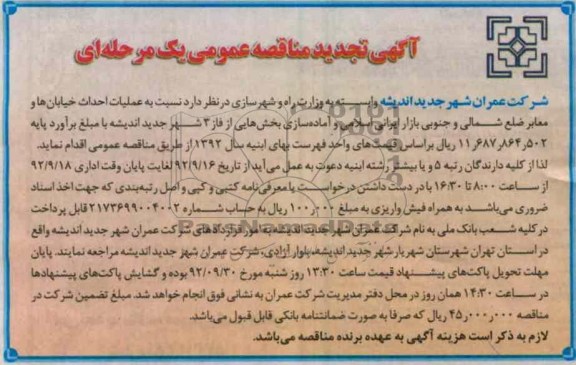 آگهی تجدید مناقصه عمومی یک مرحله‌ای
شرکت عمران شهر جدید اندیشه وابسته به وزارت راه و شهرسازی در نظر دارد نسبت به عملیات احداث خیابان‌ها و
معابر ضلع شمالی و جنوبی بازار ایرانی اسلامی و آماده‌سازی بخش‌هایی از فاز ۳ شهر جدید اندیشه با مبلغ برآورد پایه
۱۱,۶۸۷,۸۶۴,۵۰۲ ریال براساس قیمت‌های واحد فهرست بهای ابنیه سال ۱۳۹۲ از طریق مناقصه عمومی اقدام نماید.
لذا از کلیه دارندگان رتبه ۵ و یا بیشتر رشته ابنیه دعوت به عمل می‌آید از تاریخ ۹۲/۹/۱۶ لغایت پایان وقت اداری ۹۲/۹/۱۸
از ساعت ۸:۰۰ تا ۱۶:۳۰ با در دست داشتن درخواست یا معرفی‌نامه کتبی و کپی و اصل رتبه‌بندی که جهت اخذ اسناد
ضروری می‌باشد به همراه فیش واریزی به مبلغ ۱۰۰,۰۰۰ ریال به حساب شماره ۲۱۷۳۶۹۹۰۰۴۰۰۲ قابل پرداخت
در کلیه شعب بانک ملی به نام شرکت عمران شهر جدید اندیشه به امور قراردادهای شرکت عمران شهر جدید اندیشه واقع
در استان تهران شهرستان شهریار شهر جدید اندیشه، بلوار آزادی، شرکت عمران شهر جدید اندیشه مراجعه نمایند. پایان
مهلت تحویل پاکت‌های پیشنهاد قیمت ساعت ۱۳:۳۰ روز شنبه مورخ ۹۲/۰۹/۳۰ بوده و گشایش پاکت‌های پیشنهادها
در ساعت ۱۴:۳۰ همان روز در محل دفتر مدیریت شرکت عمران به نشانی فوق انجام خواهد شد. مبلغ تضمین شرکت در
مناقصه ۴۵,۰۰۰,۰۰۰ ریال که صرفا به صورت ضمانتنامه بانکی قابل قبول می‌باشد.
لازم به ذکر است هزینه آگهی به عهده برنده مناقصه می‌باشد.